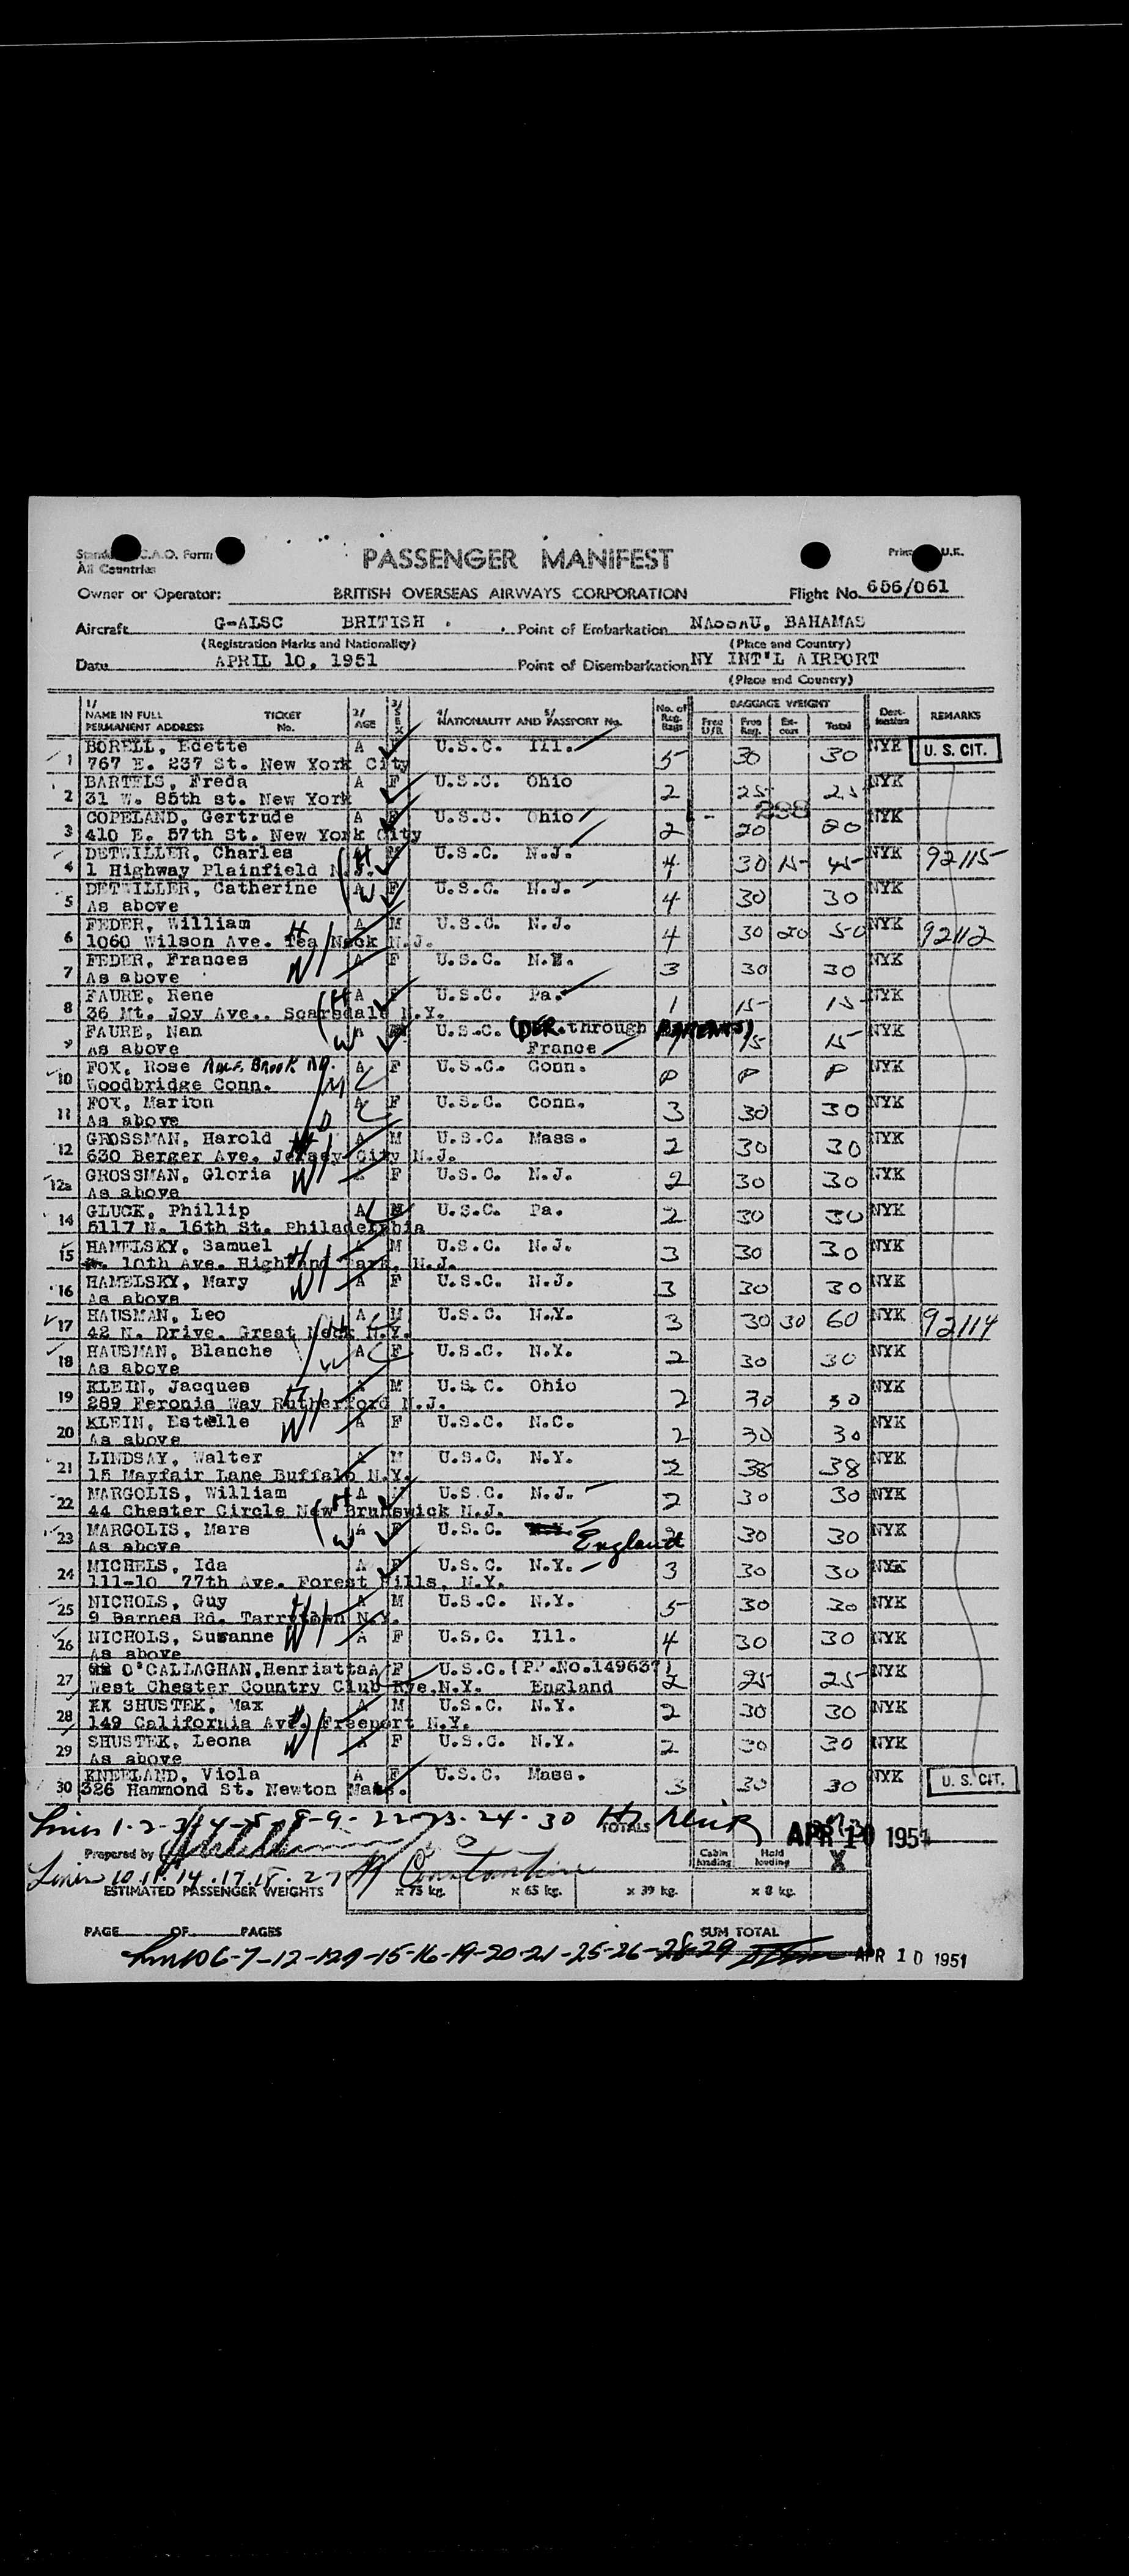 PASSENGER MANIFEST
All Countries
Owner or Operator: BRITISH OVERSEAS AIRWAYS CORPORATION Flight No. 686/061
Aircraft G-ALSC BRITISH Point of Embarkation NASSAU, BAHAMAS
(Registration Marks and Nationality) (Place and Country)
Date APRIL 10, 1951 Point of Disembarkation NY INT'L AIRPORT
(Place and Country)
1/ NAME IN FULL PERMANENT ADDRESS TICKET No. 2/ AGE 3/ SEX 4/ 5/ NATIONALITY AND PASSPORT No. No. of Reg. Bags BAGGAGE WEIGHT Free Reg. Total Destination REMARKS
1 BORELL, Edette A U.S.C. Ill. 5 30 30 NYK U. S. CIT.
767 E. 237 St. New York City
2 BARTELS, Freda A F U.S.C. Ohio 2 25 25 NYK
31 W. 85th st. New York
3 COPELAND, Gertrude A F U.S.C. Ohio 2 20 20 NYK
410 E. 57th St. New York City
4 DETWILLER, Charles H M U.S.C. N.J. 4 30 15 45 NYK 92115
1 Highway Plainfield N.J.
5 DETWILLER, Catherine W A F U.S.C. N.J. 4 30 30 NYK
As above
6 FEDER, William H A M U.S.C. N.J. 4 30 20 50 NYK 92112
1060 Wilson Ave. Tea Neck N.J.
7 FEDER, Frances W A F U.S.C. 3 30 30 NYK
As above
8 FAURE, Rene H A U.S.C. Pa. 1 15 15 NYK
36 Mt. Joy Ave.. Scarsdale N.Y.
9 FAURE, Nan W A U.S.C. (DER. through PARENTS) 15 15 NYK
As above France
10 FOX, Rose A F U.S.C. Conn. NYK
Woodbridge Conn.
11 FOX, Marion A F U.S.C. Conn. 3 30 30 NYK
As above
12 GROSSMAN, Harold H A M U.S.C. Mass. 2 30 30 NYK
630 Berger Ave. Jersey City N.J.
12a GROSSMAN, Gloria W F U.S.C. N.J. 2 30 30 NYK
As above
14 GLUCK, Phillip A M U.S.C. Pa. 2 30 30 NYK
5117 N. 16th St. Philadelphia
15 HAMELSKY, Samuel H A M U.S.C. N.J. 3 30 30 NYK
10th Ave. Highland Park, N.J.
16 HAMELSKY, Mary W A F U.S.C. N.J. 3 30 30 NYK
As above
17 HAUSMAN, Leo H A M U.S.C. N.Y. 3 30 30 60 NYK 92114
42 N. Drive. Great Neck N.Y.
18 HAUSMAN, Blanche W A F U.S.C. N.Y. 2 30 30 NYK
As above
19 KLEIN, Jacques H A M U.S.C. Ohio 2 30 30 NYK
289 Feronia Way Rutherford N.J.
20 KLEIN, Estelle W A F U.S.C. N.C. 2 30 30 NYK
As above
21 LINDSAY, Walter A M U.S.C. N.Y. 2 38 38 NYK
15 Mayfair Lane Buffalo N.Y.
22 MARGOLIS, William H A U.S.C. N.J. 2 30 30 NYK
44 Chester Circle New Brunswick N.J.
23 MARGOLIS, Mars W A F U.S.C. England 2 30 30 NYK
As above
24 MICHELS, Ida A F U.S.C. N.Y. 3 30 30 NYK
111-10 77th Ave. Forest Hills, N.Y.
25 NICHOLS, Guy H A M U.S.C. N.Y. 5 30 30 NYK
9 Barnes Rd. Tarrytown N.Y.
26 NICHOLS, Suzanne W A F U.S.C. Ill. 4 30 30 NYK
As above
27 O'CALLAGHAN, Henriatta A F U.S.C. (PP.No.149637) 2 25 25 NYK
West Chester Country Club Rye, N.Y. England
28 SHUSTEK, Max H A M U.S.C. N.Y. 2 30 30 NYK
149 California Ave. Freeport N.Y.
29 SHUSTEK, Leona W A F U.S.C. N.Y. 2 30 30 NYK
As above
30 KNEELAND, Viola A F U.S.C. Mass. 3 30 30 NYK U. S. CIT.
326 Hammond St. Newton Mass.
Lines 1-2-3-4-5-8-9-22-23-24-30 TOTALS APR 10 1951
Prepared by Cabin loading Hold loading X
Lines 10.11.14.17.18.27 Constantine
ESTIMATED PASSENGER WEIGHTS x 75 kg. x 65 kg. x 39 kg. x 8 kg.
PAGE OF PAGES SUM TOTAL
6-7-12-12a-15-16-19-20-21-25-26-28-29 APR 10 1951